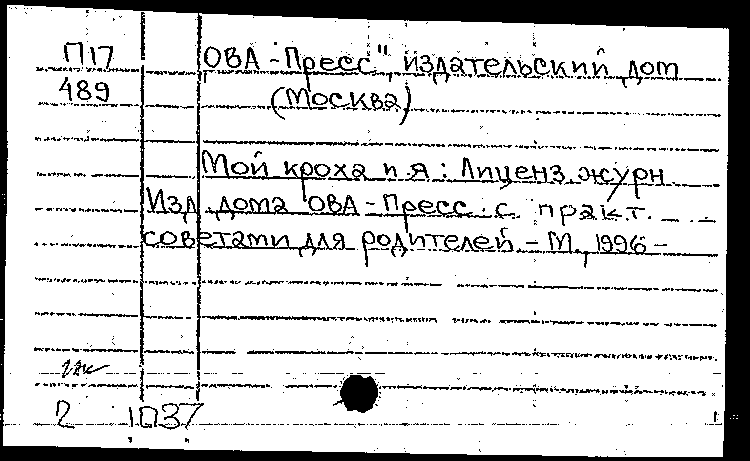 П17 „ОВА-Пресс", издательский дом
489 (Москва)
Мой кроха и я: Лиценз. журн
Изд. дома "ОВА-Пресс с практ.
советами для родителей. - М., 1996 -
2 1037